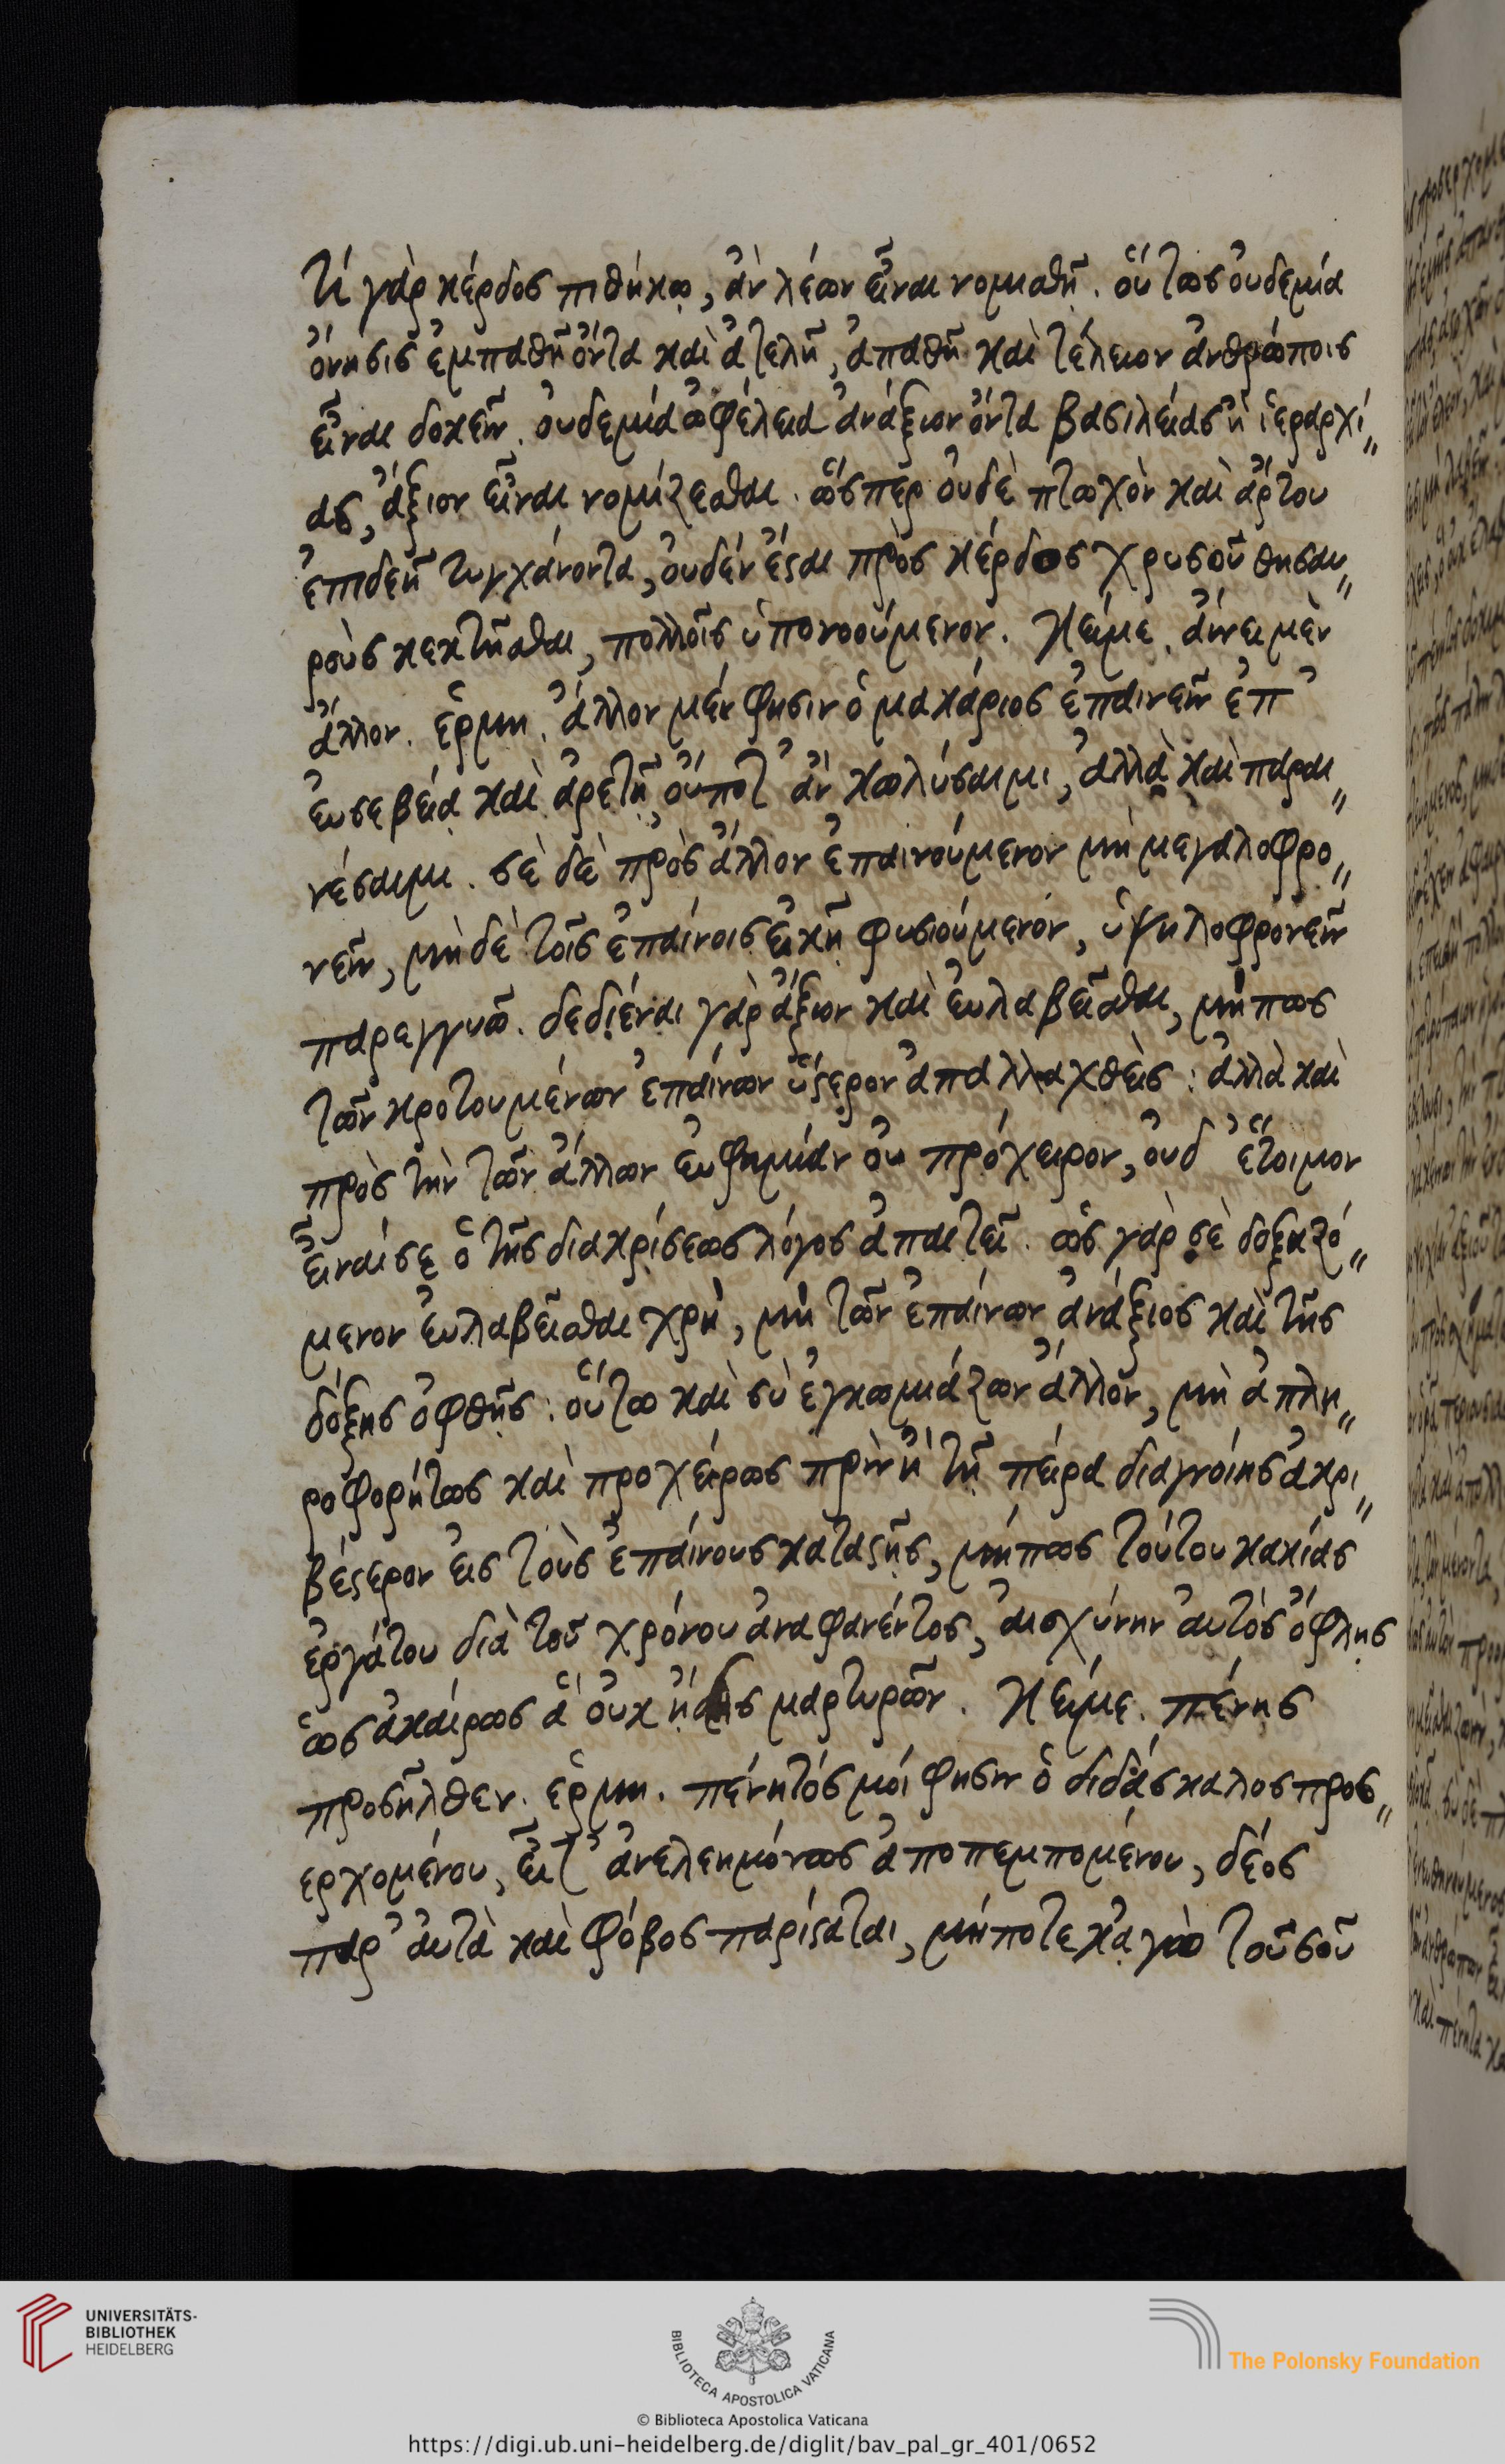 τί γὰρ κέρδος πιθήκῳ, ἂν λέων εἶναι νομισθῇ. οὕτως οὐδεμία
ὄνησις ἐμπαθῆ ὄντα καὶ ἀτελῆ, ἀπαθῆ καὶ τέλειον ἀνθρώποις
εἶναι δοκεῖν. οὐδεμία ὠφέλεια ἀνάξιον ὄντα βασιλείας ἢ ἱεραρχί„
ας, ἄξιον εἶναι νομίζεσθαι. ὥσπερ οὐδὲ πτωχὸν καὶ ἄρτου
ἐπιδεῆ τυγχάνοντα, οὐδέν ἐσται πρὸς κέρδος χρυσοῦ θησαυ„
ροὺς κεκτῆσθαι, πολλοῖς ὑπονοούμενον. Κείμε. αἴνει μὲν
ἄλλον. ἑρμη. ἄλλον μέν φησιν ὁ μακάριος ἐπαινεῖν ἐπ᾽
εὐσεβείᾳ καὶ ἀρετῇ οὔποτ᾽ ἂν κωλύσαιμι, ἀλλὰ καὶ παραι„
νέσαιμι. σὲ δὲ πρὸς ἄλλον ἐπαινούμενον μὴ μεγαλοφρο„
νεῖν, μὴ δὲ τοῖς ἐπαίνοις εἰκῆ φυσιούμενόν, ὑψηλοφρονεῖν
παρεγγυῶ. δεδιέναι γὰρ ἄξιον καὶ εὐλαβεῖσθαι, μήπως
τῶν κροτουμένων ἐπαίνων ὕστερον ἀπαλλαχθεὶς: ἀλλὰ καὶ
πρὸς τὴν τῶν ἄλλων εὐφημίαν οὐ πρόχειρον, οὐδ᾽ ἕτοιμον
εἶναί σε ὁ τῆς διακρίσεως λόγος ἀπαιτεῖ. ὡς γὰρ σὲ δοξαζό„
μενον εὐλαβεῖσθαι χρὴ, μὴ τῶν ἐπαίνων ἀνάξιος καὶ τῆς
δόξης ὀφθῇς: οὕτω καὶ σὺ ἐγκωμιάζων ἄλλον, μὴ ἀπλη„
ροφορήτως καὶ προχείρως πρὶν ἢ τῇ πείρᾳ διαγνοίης ἀκρι„
βέστερον εἰς τοὺς ἐπαίνους καταστῇς, μήπως τούτου κακίας
ἐργάτου διὰ τοῦ χρόνου ἀναφανέντος, αἰσχύνην αὐτὸς ὄφλῃς
ὡς ἀκαίρως ἃ οὐκ ᾔδεις μαρτυρῶν. Κείμε. πένης
προσῆλθεν. ἑρμη. πένητός μοί φησιν ὁ διδάσκαλος προς„
ερχομένου, εἶτ᾽ ἀνελεημόνως ἀποπεμπομένου, δέος
παρ᾽ αὐτὰ καὶ φόβος παρίσταται, μήποτε κἀγὼ τοῦ σοῦ
UNIVERSITÄTS-
BIBLIOTHEK
HEIDELBERG
BIBLIOTECA APOSTOLICA VATICANA
The Polonsky Foundation
© Biblioteca Apostolica Vaticana
https://digi.ub.uni-heidelberg.de/diglit/bav_pal_gr_401/0652